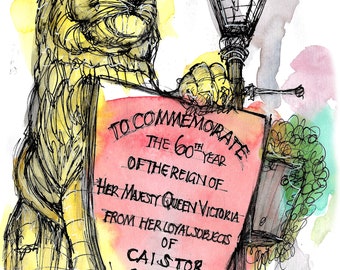 TO COMMEMORATE
THE 60TH YEAR
OF THE REIGN OF
HER MAJESTY QUEEN VICTORIA
FROM HER LOYAL SUBJECTS
OF
CAISTOR